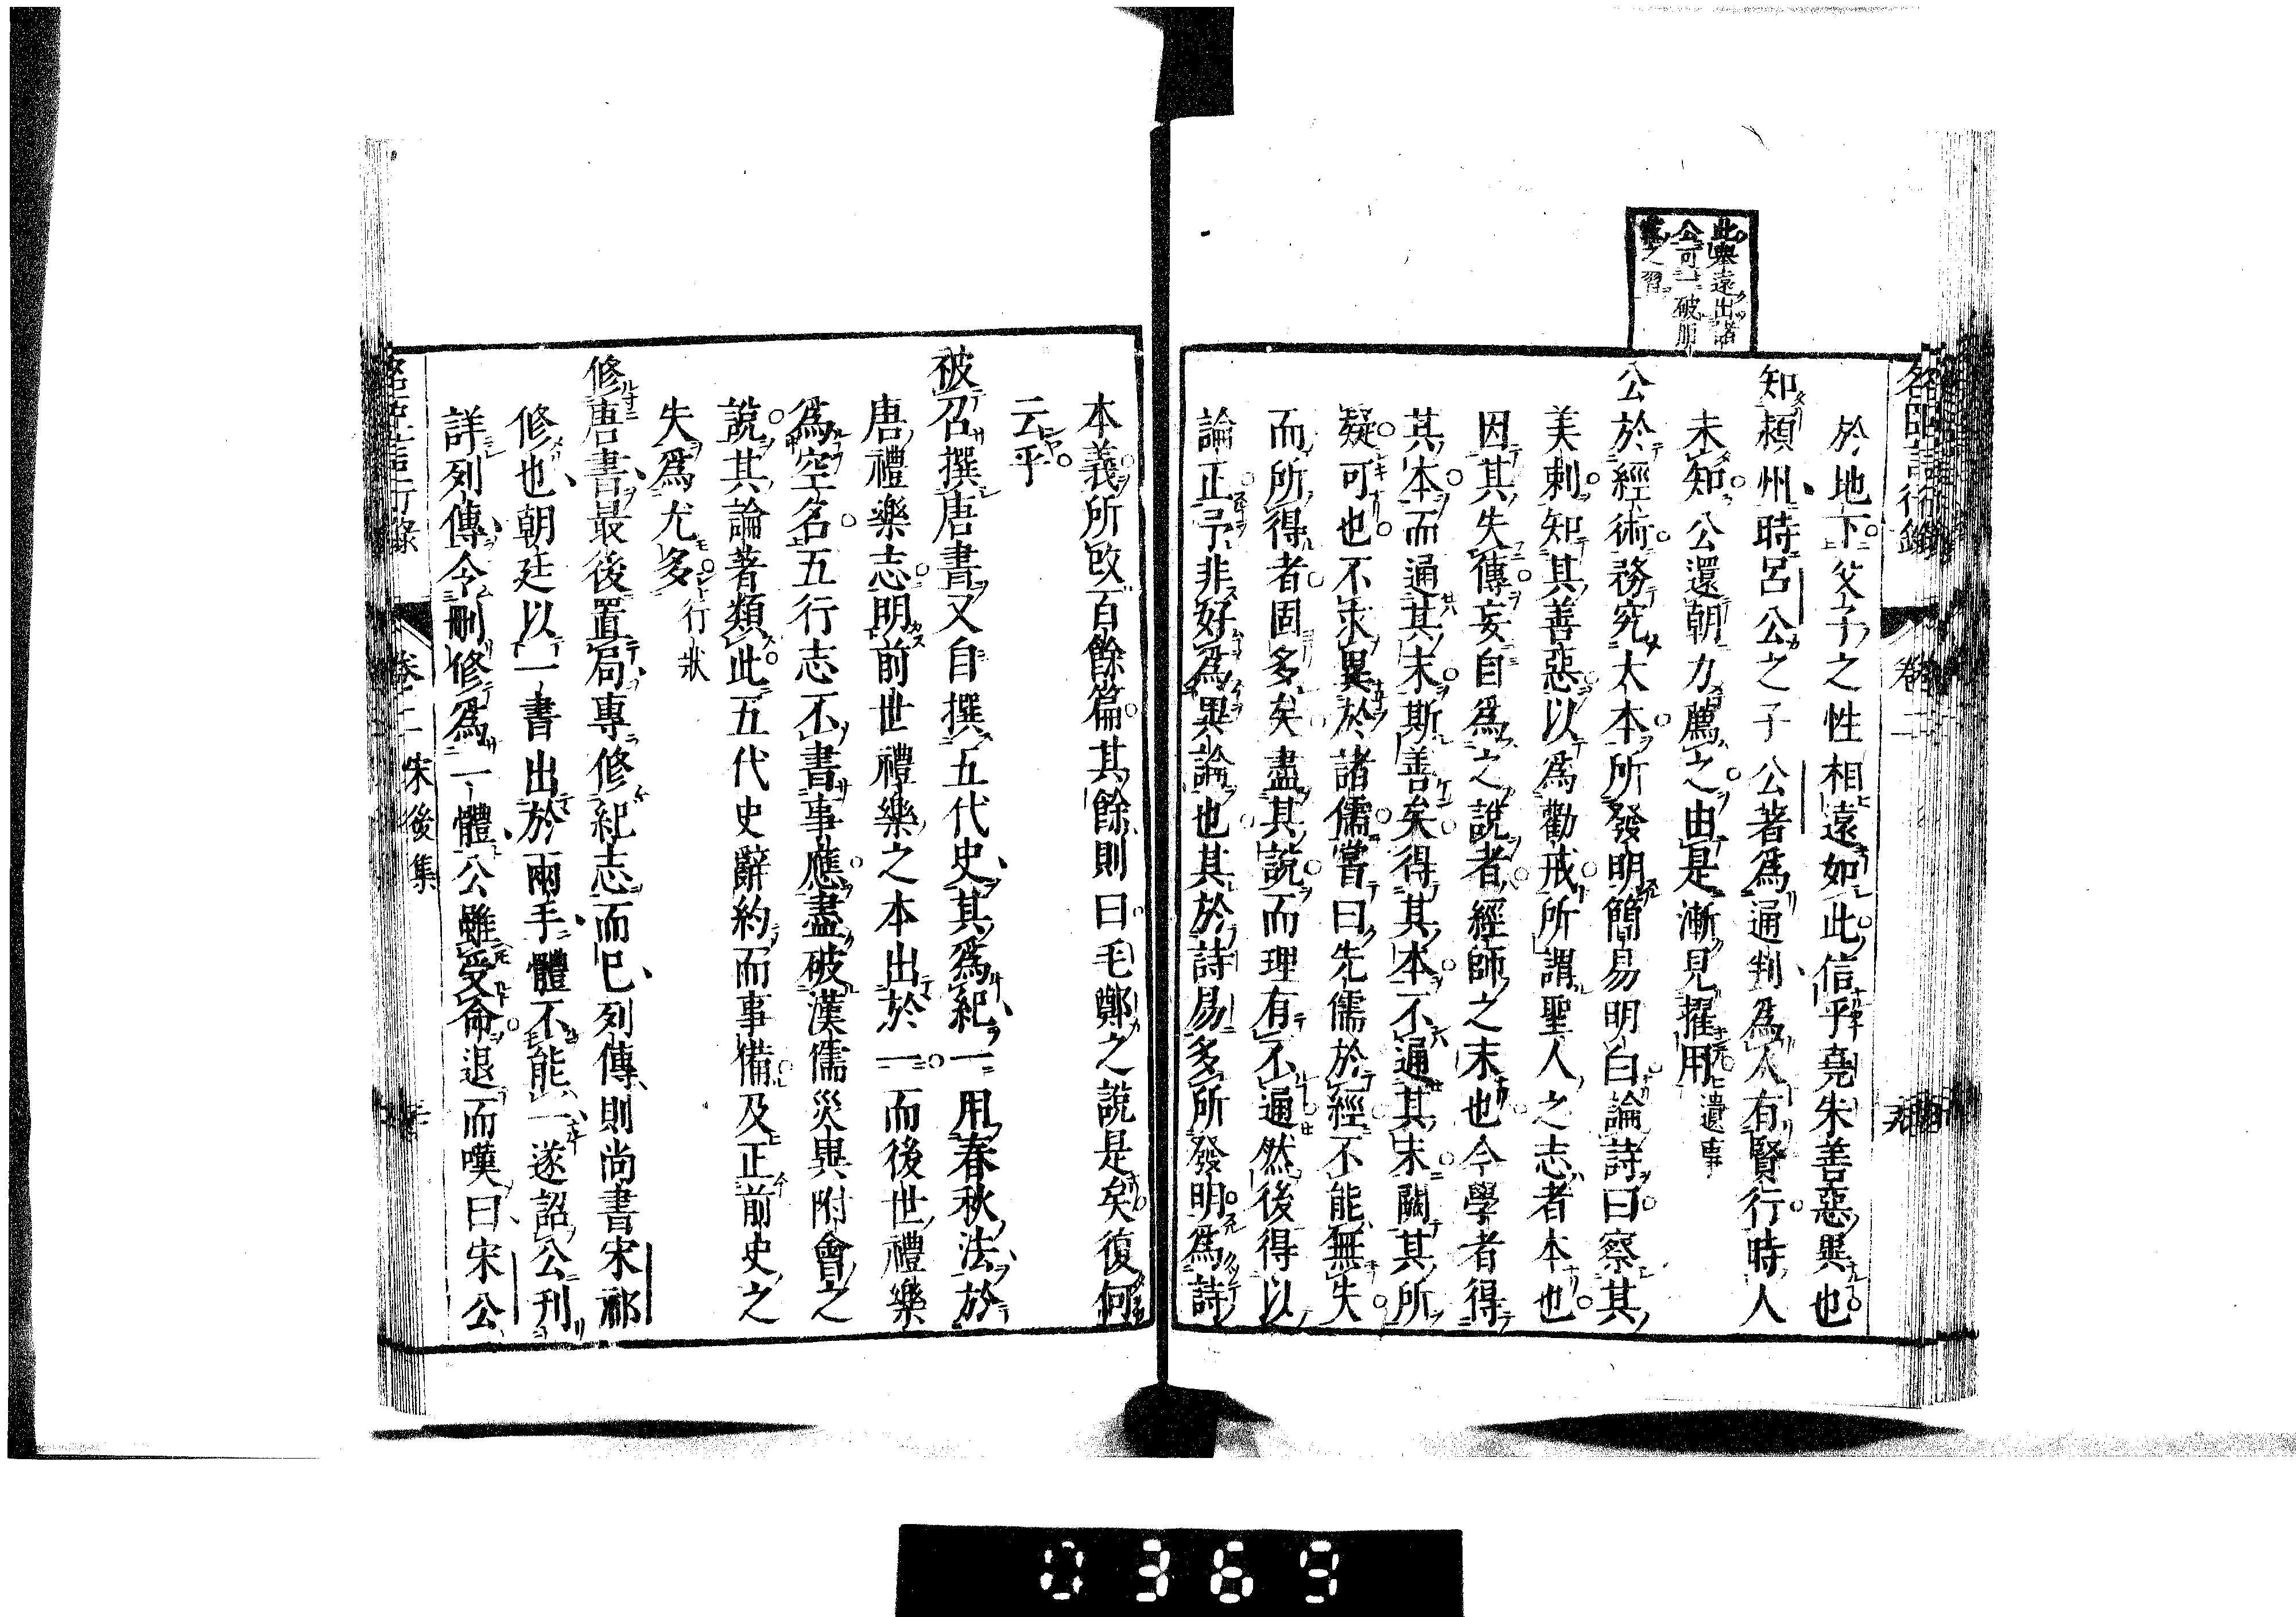 名臣言行錄
卷二
此舉遠出諸
公可一破朋
黨之習
於地下父子之性相遠如此信乎堯朱善惡異也
知頴州時呂公之子公著爲通判爲人有賢行時人
未知公還朝力薦之由是漸見擢用遺事
公於經術務究大本所發明簡易明白論詩曰察其
美刺知其善惡以爲勸戒所謂聖人之志者本也
因其失傳妄自爲之說者經師之末也今學者得
其本而通其末斯善矣得其本不通其末闕其所
疑可也不求異於諸儒嘗曰先儒於經不能無失
而所得者固多矣盡其說而理有不通然後得以
論正予非好爲異論也其於詩易多所發明爲詩
本義所改百餘篇其餘則曰毛鄭之說是矣復何
云乎
被召撰唐書又自撰五代史其爲紀一用春秋法於
唐禮樂志明前世禮樂之本出於一而後世禮樂
爲空名五行志不書事應盡破漢儒災異附會之
說其論著類此五代史辭約而事備及正前史之
失爲尤多行狀
修唐書最後置局專修紀志而已列傳則尚書宋祁
修也朝廷以一書出於兩手體不能一遂詔公刊
詳列傳令刪修爲一體公雖受命退而嘆曰宋公
名臣言行錄
卷二
宋後集
0369